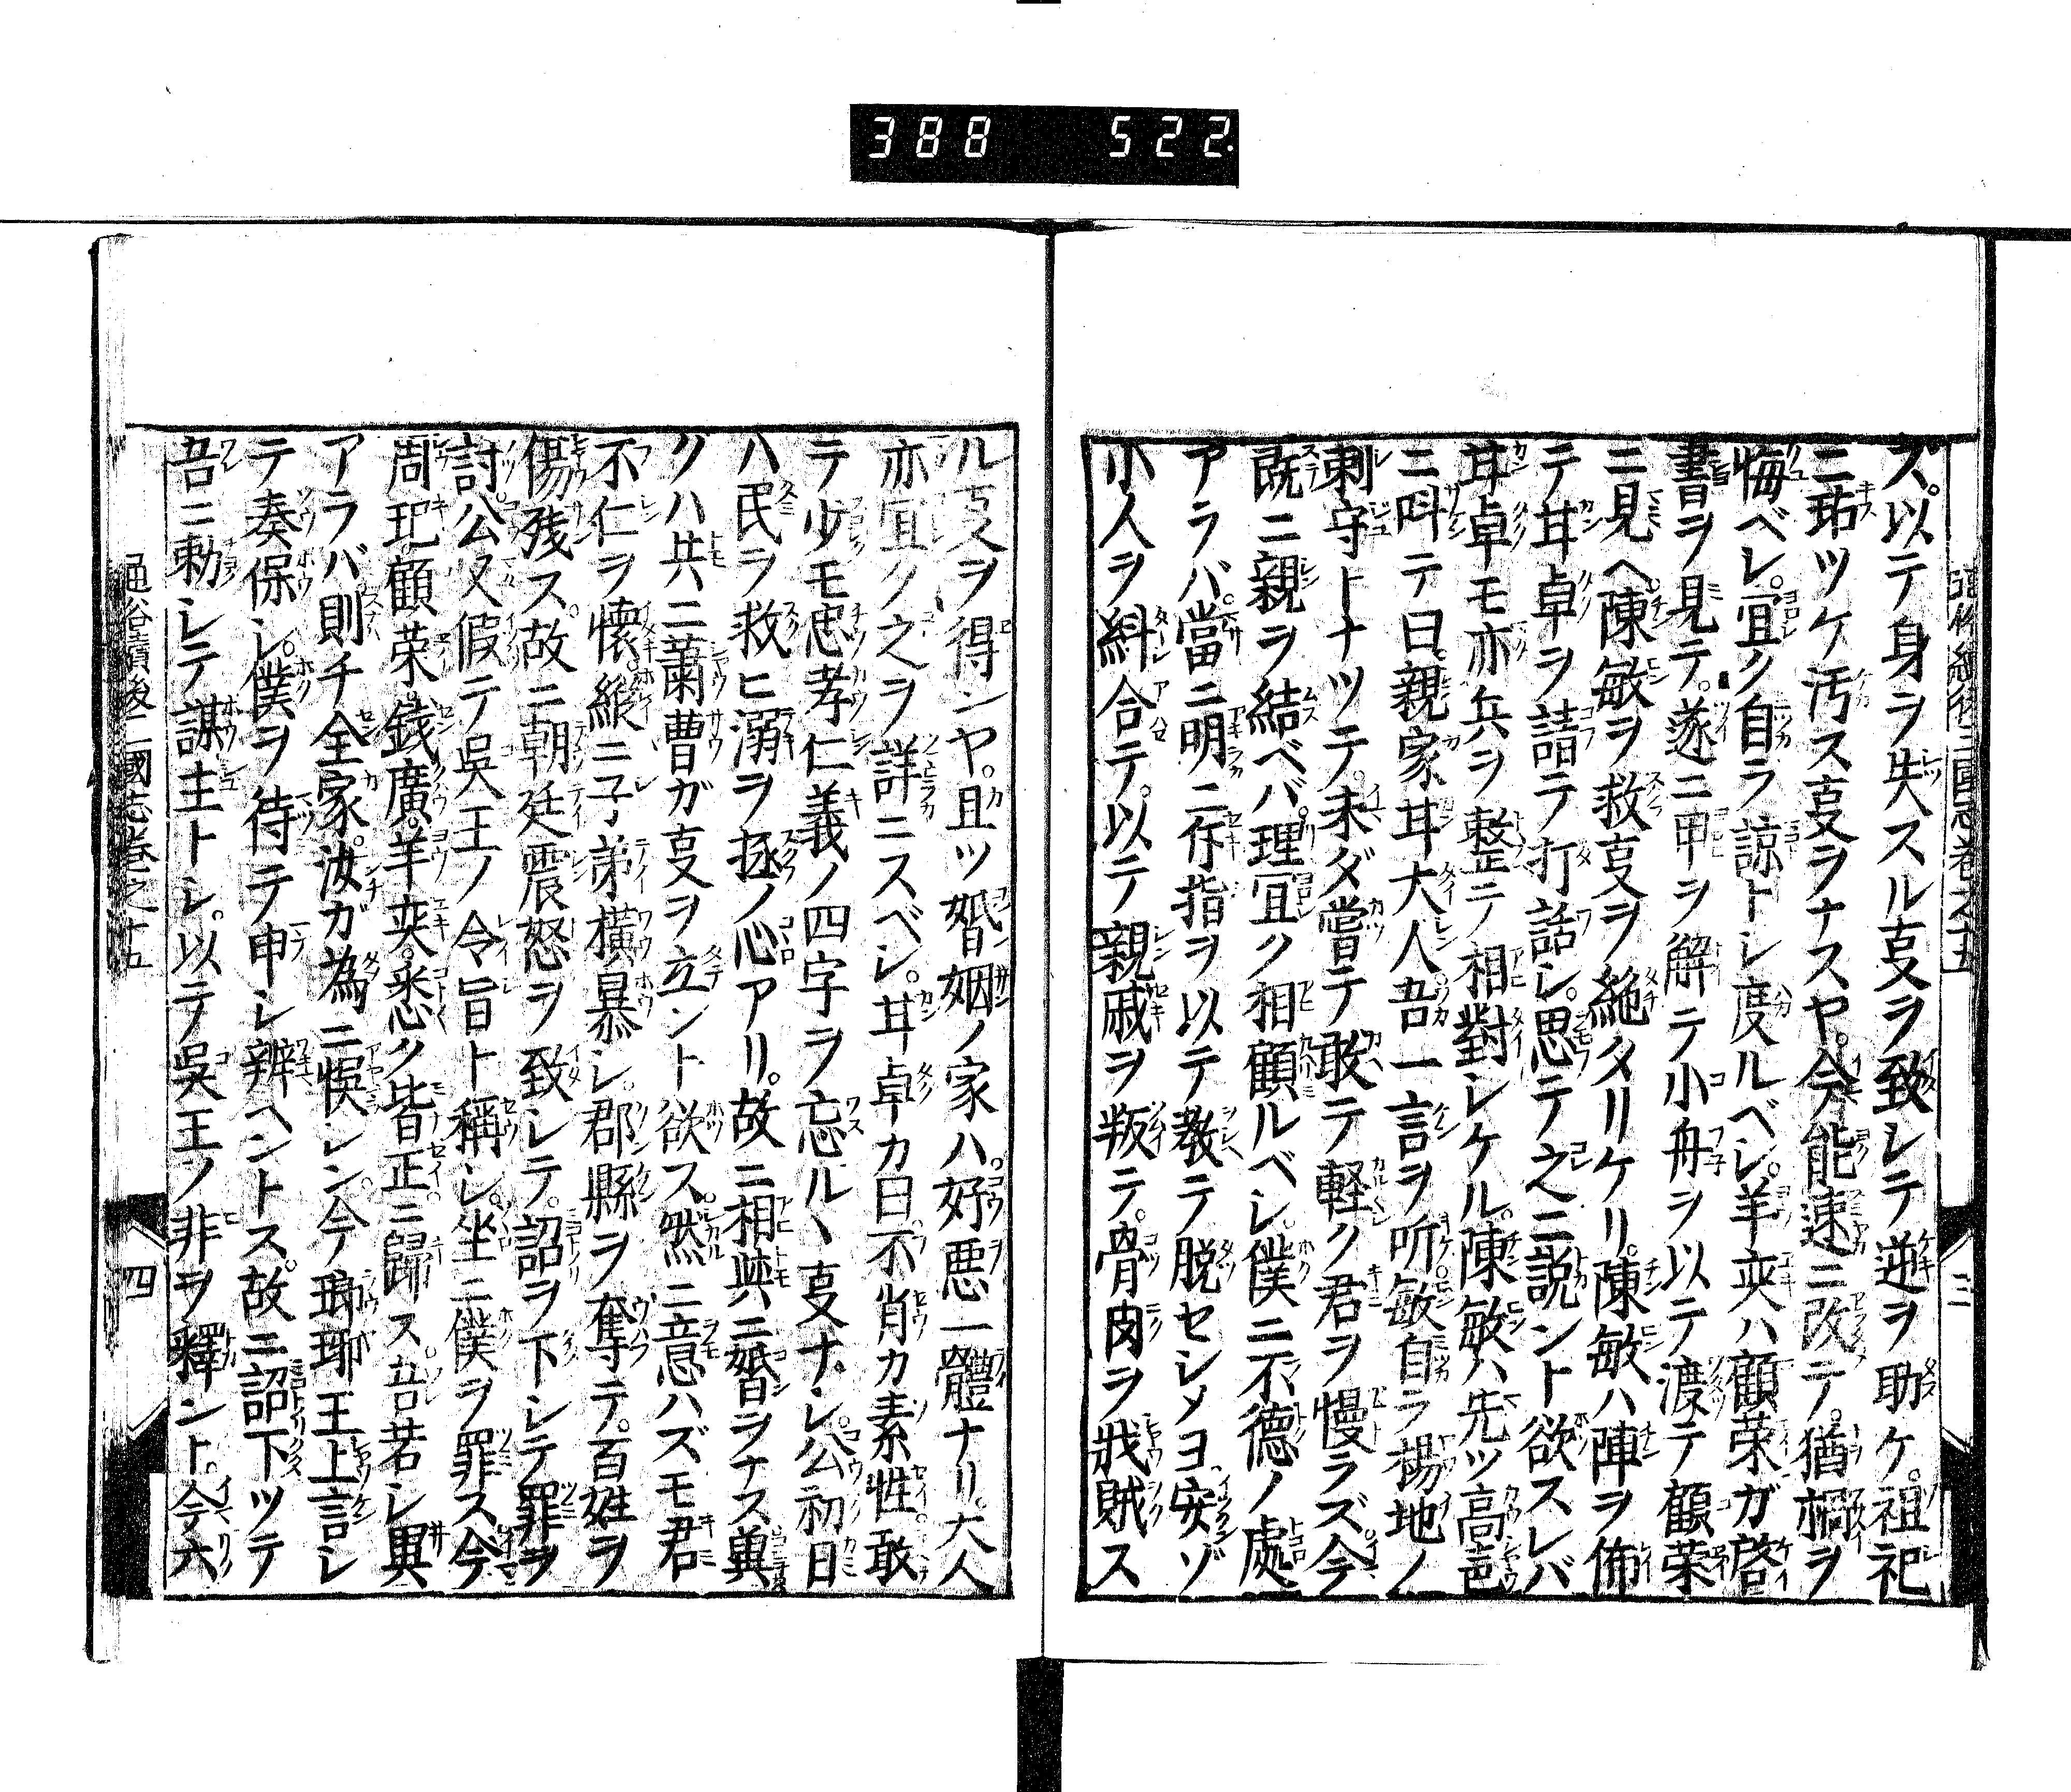 388 522
ズ。以テ身ヲ失スル㕝ヲ致シテ逆ヲ助ケ。祖祀
ニ玷ツケ汚ス㕝ヲナスヤ。今能速ニ改テ。猶禍ヲ
悔ベシ。宜ク自ラ諒トシ度ルベシ。羊夾ハ顧荣ガ啓
書ヲ見テ。遂ニ甲ヲ解テ小舟ヲ以テ渡テ顧荣
ニ見ヘ。陳敏ヲ救㕝ヲ絶タリケリ。陳敏ハ陣ヲ佈
テ甘卓ヲ詰テ打話シ。思テ之ニ説ント欲スレバ
甘卓モ亦兵ヲ整テ相對シケル。陳敏ハ先ツ高声
ニ呌テ曰。親家甘大人吾一言ヲ听。敏自ラ楊地ノ
刺守トナツテ。未ダ嘗テ敢テ軽ク君ヲ慢ラズ今
既ニ親ヲ結ベバ。理宜ク相顧ルベシ。僕ニ不徳ノ處
アラバ。當ニ明ニ斥指ヲ以テ教テ脱セシメヨ安ゾ
小人ヲ糾合テ。以テ親戚ヲ叛テ。骨肉ヲ戕賊ス
ル㕝ヲ得ンヤ。且ツ婚姻ノ家ハ。好悪一體ナリ。大人
亦宜ク之ヲ詳ニスベシ。甘卓カ曰不肖カ素性。敢
テ少モ忠孝仁義ノ四字ヲ忘ルヽ㕝ナシ。公初日
ハ民ヲ救ヒ溺ヲ拯ノ心アリ。故ニ相與ニ婚ヲナス冀
クハ共ニ蕭曹ガ㕝ヲ立ント欲ス。然ニ意ハズモ君
不仁ヲ懐。縦ニ子弟橫暴シ。郡縣ヲ奪テ。百姓ヲ
傷残ス。故ニ朝廷震怒ヲ致シテ。詔ヲ下シテ罪ヲ
討。公又假テ吳王ノ令旨ト稱シ。坐ニ僕ヲ罪ス今
周玘。顧荣。錢廣。羊夾。悉ク皆正ニ歸ス吾若シ異
アラバ則チ全家。汝ガ為ニ悞レン。今瑯琊王上言シ
テ奏保シ。僕ヲ待テ申シ辨ヘントス。故ニ詔下ツテ
吾ニ勅シテ謀主トシ。以テ吳王ノ非ヲ釋ント。今六
通俗續後三國志巻之十五
四